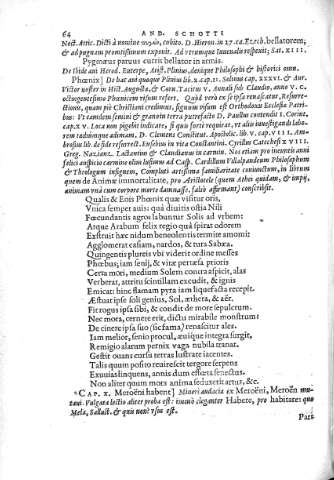 64 AND. SCHOTTI
Nect. Attic. Dicti à nomine πυγμὴ, cubito. D. Hieron. in 27. ca. Ezech. bellatorem,
& ad pugnam promtissimum exponit. Ad verumque Iuuenalis respexit; Sat. XIII.
Pygmæus paruus currit bellator in armis.
De iisde ani Herod. Euterpe, Arist. Plinius, denique Philosophi & historici omn.
Phœnix] De hac aui quoque Plinius lib. x. cap. II. Solinus cap. XXXVI. & Aur.
Victor noster in Hist. Augusta, & Corn. Tacitus V. Annali sub Claudio, anno V. C.
octogentesimo Phœnicem visum refert. Quid verò ex se ipsa renascatur, Resurre-
ctionis, quam piè Christiani credimus, signum visum est Orthodoxis Ecclesiæ Patri-
bus: Vt eamdem semini & grano in terra putrefacto D. Paullus contendit 1. Corint.
cap. XV. Loca non pigebit indicare, si quis fortè requirat, vt alio inuestigandi labo-
rem tædiumque adimam. D. Clemens Constitut. Apostolic. lib. V. cap. VIII. Am-
brosius lib. de fide resurrect. Eusebius in vita Constantini. Cyrillus Catechesi XVIII.
Greg. Nazianz. Lactantius & Claudianus in carmin. Nos etiam pro ineuntis anni
felici auspicio carmine olim lusimus ad Casp. Cardillum Villalpandeum Philosophum
& Theologum insignem, Compluti
quem de Animæ immortalitate, pro Aristotele (quem Athei quidam, & impij,
animam vnà cum corpore morte damnasse, falsò affirmant) conscripsit.
Qualis & Enis Phœnix quæ visitur oris,
Vnica semper auis: quà diuitis ostia Nili
Fœcundantis agros labuntur Solis ad vrbem:
Atque Arabum felix regio quà spirat odorem
Exstruit hæc nidum beneolentis termite amomi:
Agglomerat casiam, nardos, & tura Sabæa.
Quingentis plureis vbi viderit ordine messes
Phœbus; iam senij, & vitæ pertæsa prioris
Certa mori, medium Solem contra aspicit, alas
Verberat, attritu scintillam excudit, & ignis
Emicat: hinc flammam pyra iam liquefacta recepit.
Æstuat ipse soli genius, Sol, æthera, & aër.
Fit rogus ipsa sibi, & condit de more sepulcrum.
Nec mora, cernere erit, dictu mirabile monstrum!
De cinere ipsa suo (sic fama) renascitur ales.
Iam melior, senio procul, æuique integra surgit,
Remigio alarum pernix vaga nubila tranat.
Gestit ouans cursu terras lustrare iacentes.
Talis quum posito reuirescit tergore serpens
Exuuias linquens, annis dum effœta senectus.
Non aliter quom mors anima seduxerit artus, &c.
Cap. X. Meroëni habent] Minori audacia ex Meroëni, Meroën mu-
taui. Vulgata lectio aliter proba est: immò eleganter Habere, pro habitare; quo
Mela, Sallust. & quis non? vsus est.
Pari